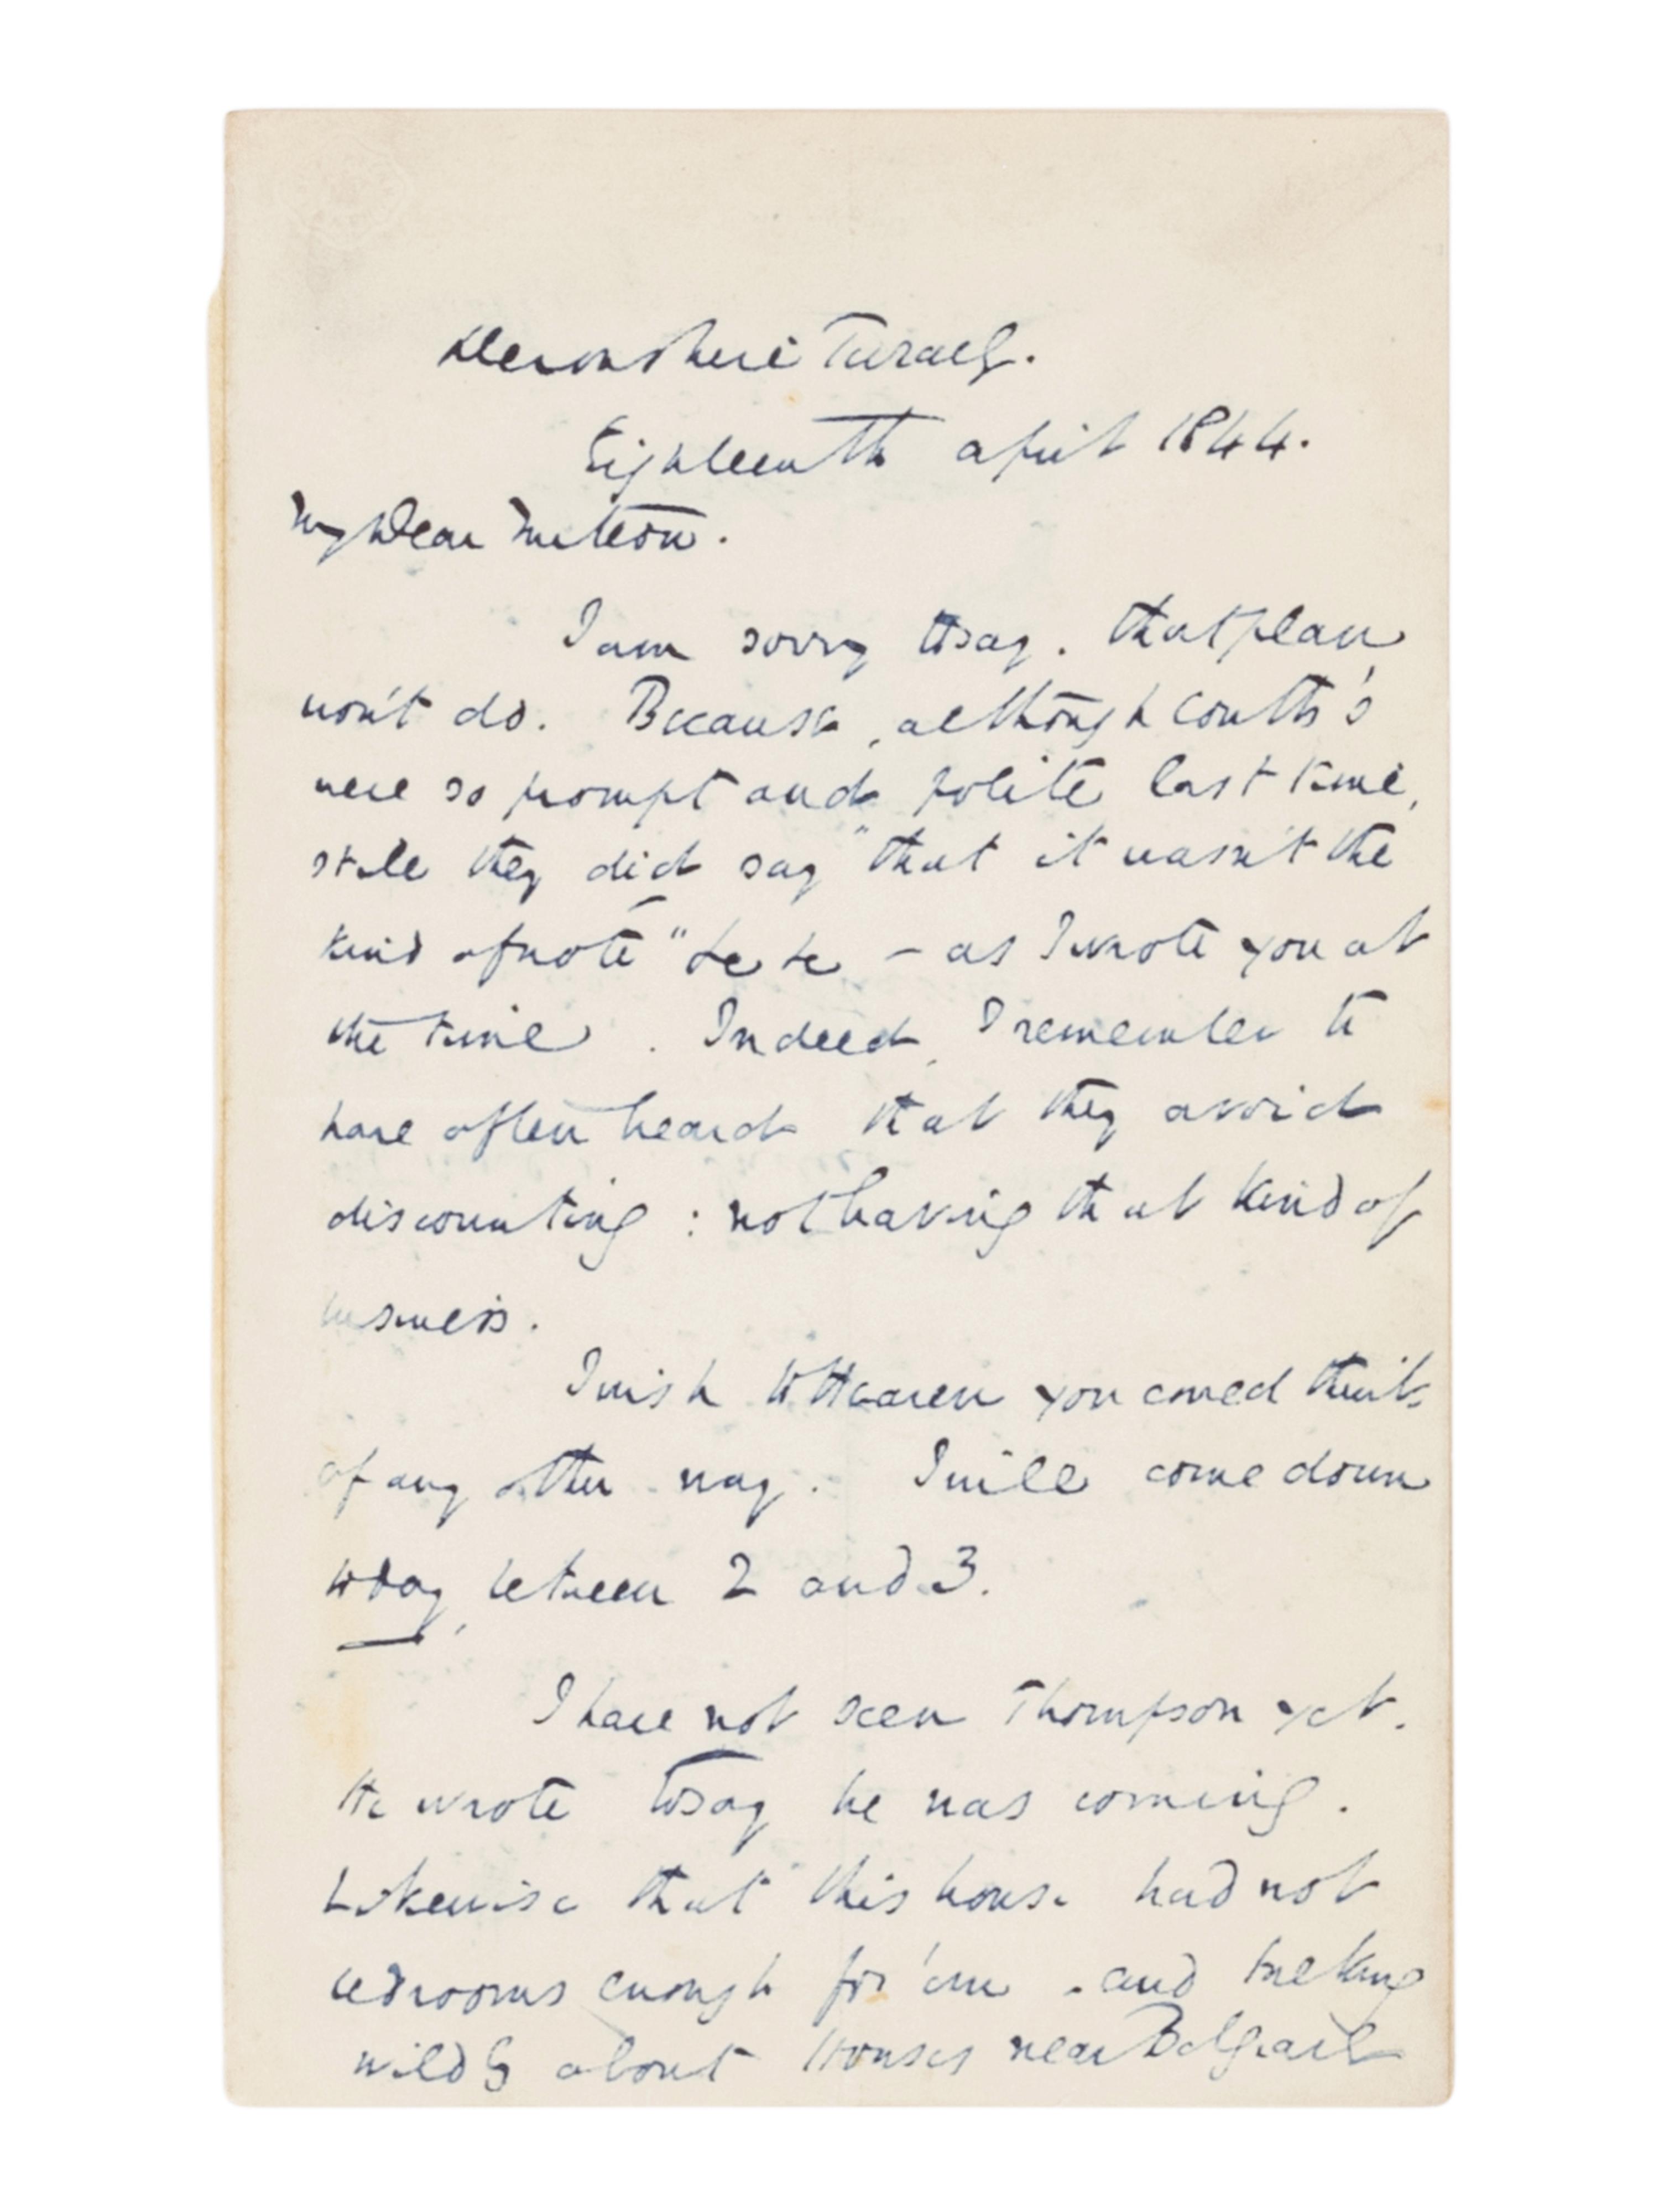 Devonshire Terrace.
Eighteenth April 1844.
My Dear Mitton.
I am sorry to say, that plan
won't do. Because, although Coutts's
were so prompt and polite last time,
still they did say "that it wasn't the
kind of note" &c &c – as I wrote you at
the time. Indeed, I remember to
have often heard that they avoid
discounting: not having that kind of
business.
I wish to Heaven you could think
of any other way. I will come down
today, between 2 and 3.
I have not seen Thompson yet.
He wrote to say he was coming.
Likewise that this house had not
bedrooms enough for 'em. and talking
wildly about Houses near Belgrave